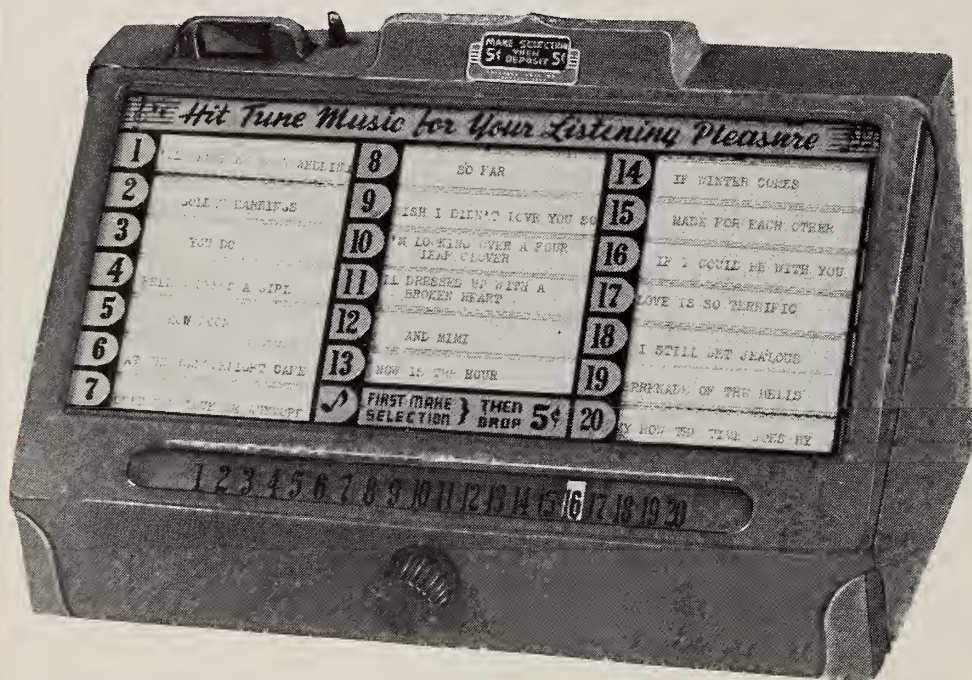 MAKE SELECTION
5¢ THEN DEPOSIT 5¢
Hit Tune Music for Your Listening Pleasure
1
2
3 YOU DO
4 A GIRL
5
6 AT THE CAFE
7
8 SO FAR
9 WISH I DIDN'T LOVE YOU SO
10 I'M LOOKING OVER A FOUR
LEAF CLOVER
11 ALL DRESSED UP WITH A
BROKEN HEART
12 AND MIMI
13 NOW IS THE HOUR
♪ FIRST MAKE SELECTION } THEN DROP 5¢
14 IF WINTER COMES
15 MADE FOR EACH OTHER
16 IF I COULD BE WITH YOU
17 LOVE IS SO TERRIFIC
18 I STILL GET JEALOUS
19 SERENADE OF THE BELLS
20 MY HOW THE TIME GOES BY
1 2 3 4 5 6 7 8 9 10 11 12 13 14 15 16 17 18 19 20